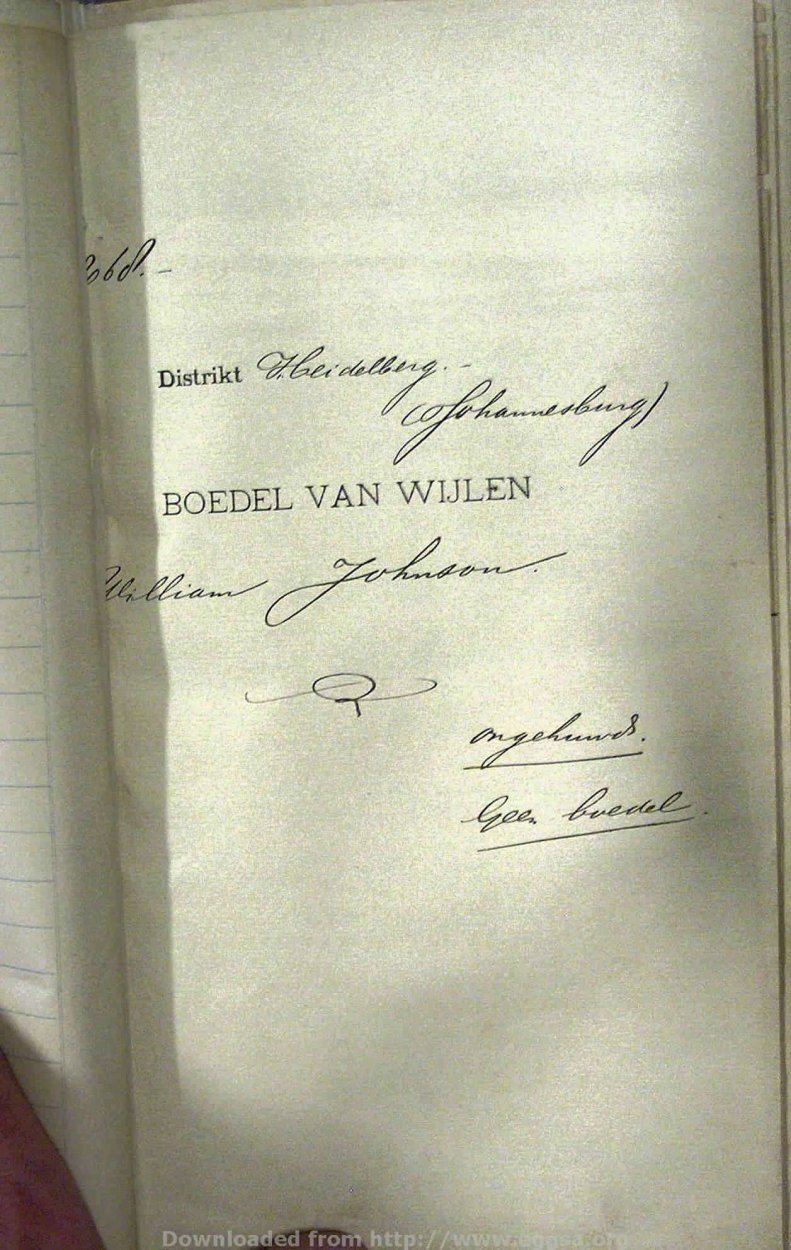 Distrikt Heidelberg.-
(Johannesburg)
BOEDEL VAN WIJLEN
William Johnson.
ongehuwd.
Geen boedel.
Downloaded from http://www.eggsa.org